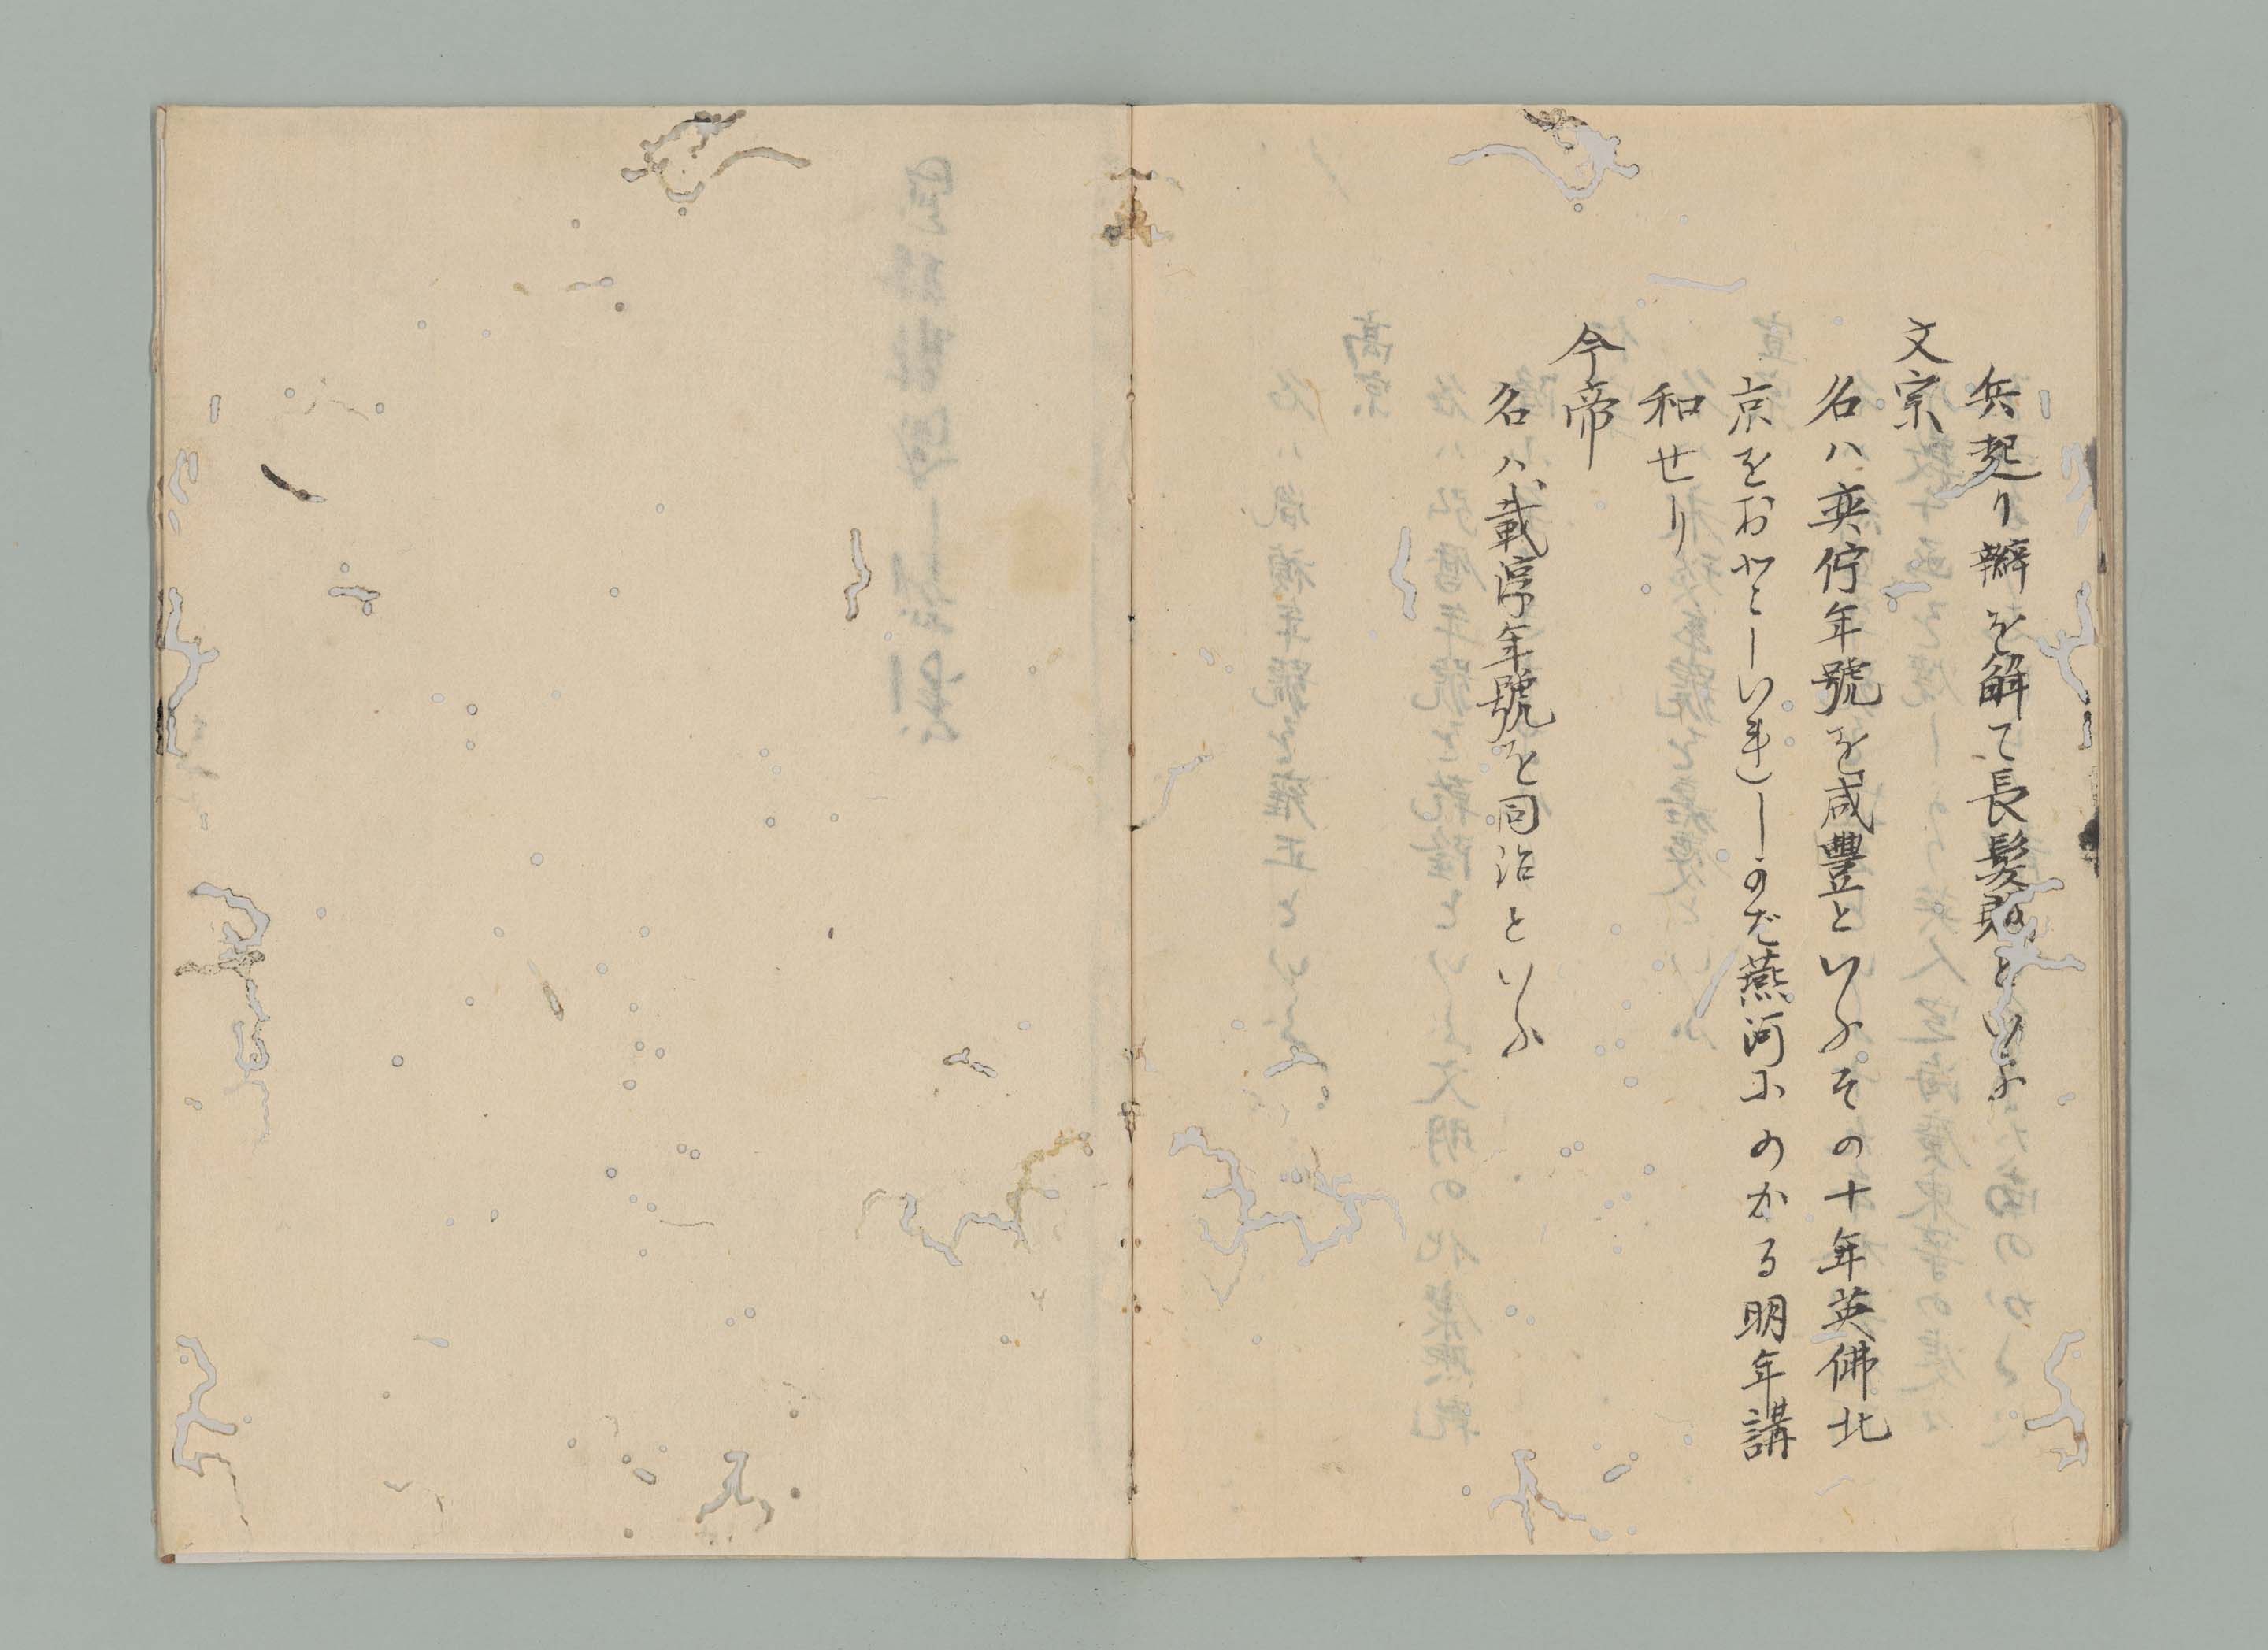 兵起り辮を解て長髪賊といふ
文宗
名ハ奕佇年號を咸豐といふその十年英佛北
京をおとしいれしかバ燕河にのかる明年講
和せり
今帝
名ハ載淳年號を同治といふ